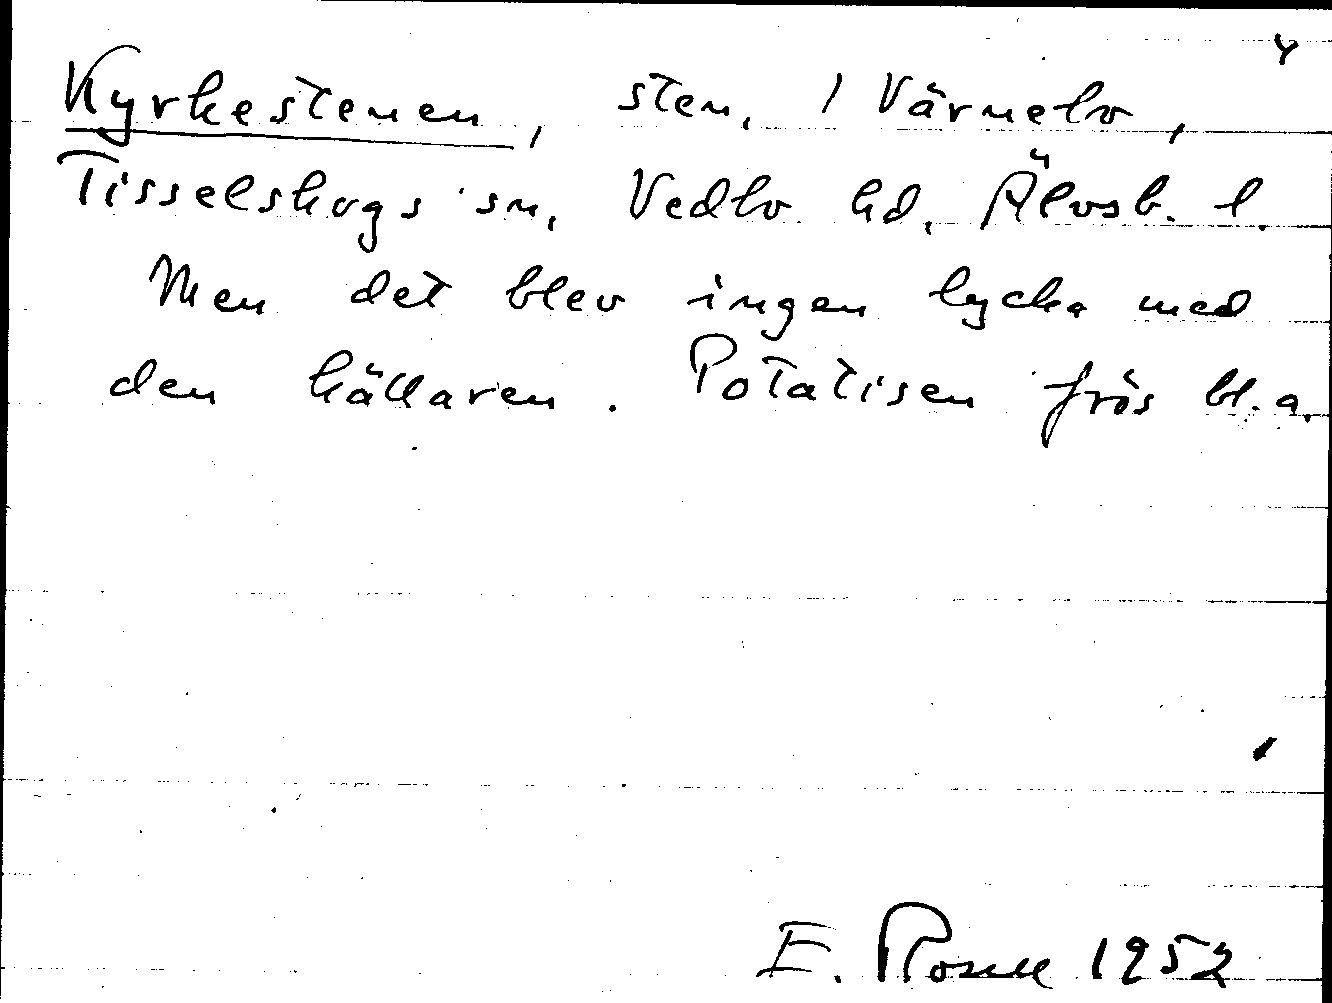 4
Kyrkestenen, sten, 1 Värnebo,
Tisselskogs sn, Vedbo hd, Älvsb. l.
Men det blev ingen lycka med
den källaren. Potatisen frös bl.a.
E. Rosell 1952